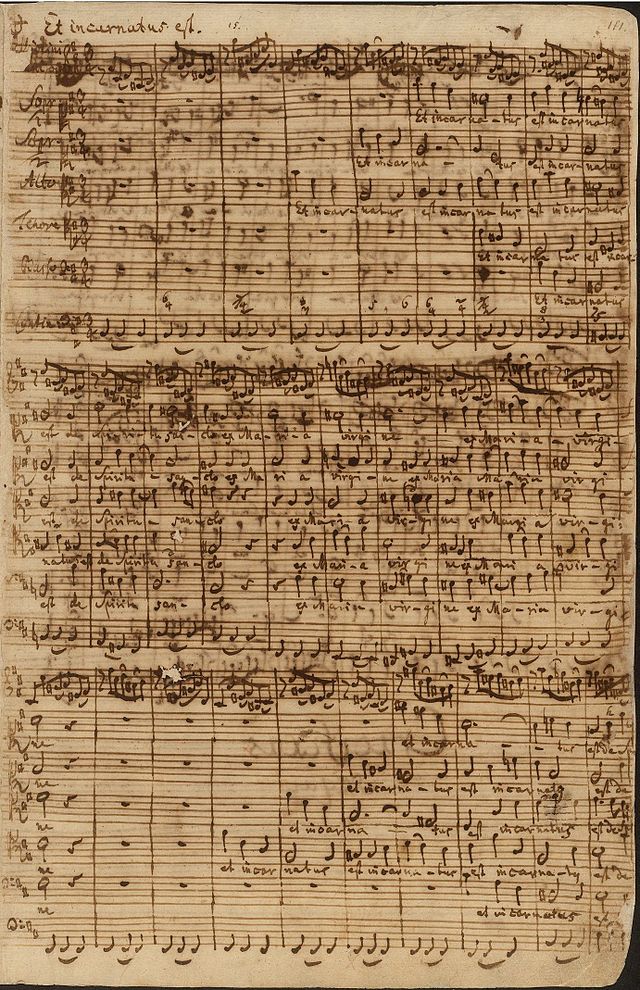 Et incarnatus est. 15. 111.
Sopr. 1
Et incarna-tus est incarnatus
Sopr. 2
Et incarna - tus est incar-natus
Alto
Et incar-natus est incarna-tus est incarnatus
Tenore
Et incarna tus est incar
Basso
Et incarnatus
6 4
5 6 6 4
Continuo
est de Spiritu san-cto ex Ma-ri-a virgi ne ex Mari-a-virgi-
est de Spiritu - san-cto ex Ma ri a virgi-ne ex Maria Maria vir gi
est de Spiritu - san cto ex Mari a vir-gi ne ex Mari a vir-gi-
natus est de Spiritu san-cto ex Mari-a vir gi ne ex Mari a vir gi
est de Spiritu san-cto ex Maria vir-gi ne ex Ma-ria vir-gi-
ne et incarna - - tus est de
ne et incarna-tus est incarnatus est de
ne et incarna tus est incarnatus est de
ne et incar natus est incarna-tus est incarna-tus est de
ne et incarnatus est